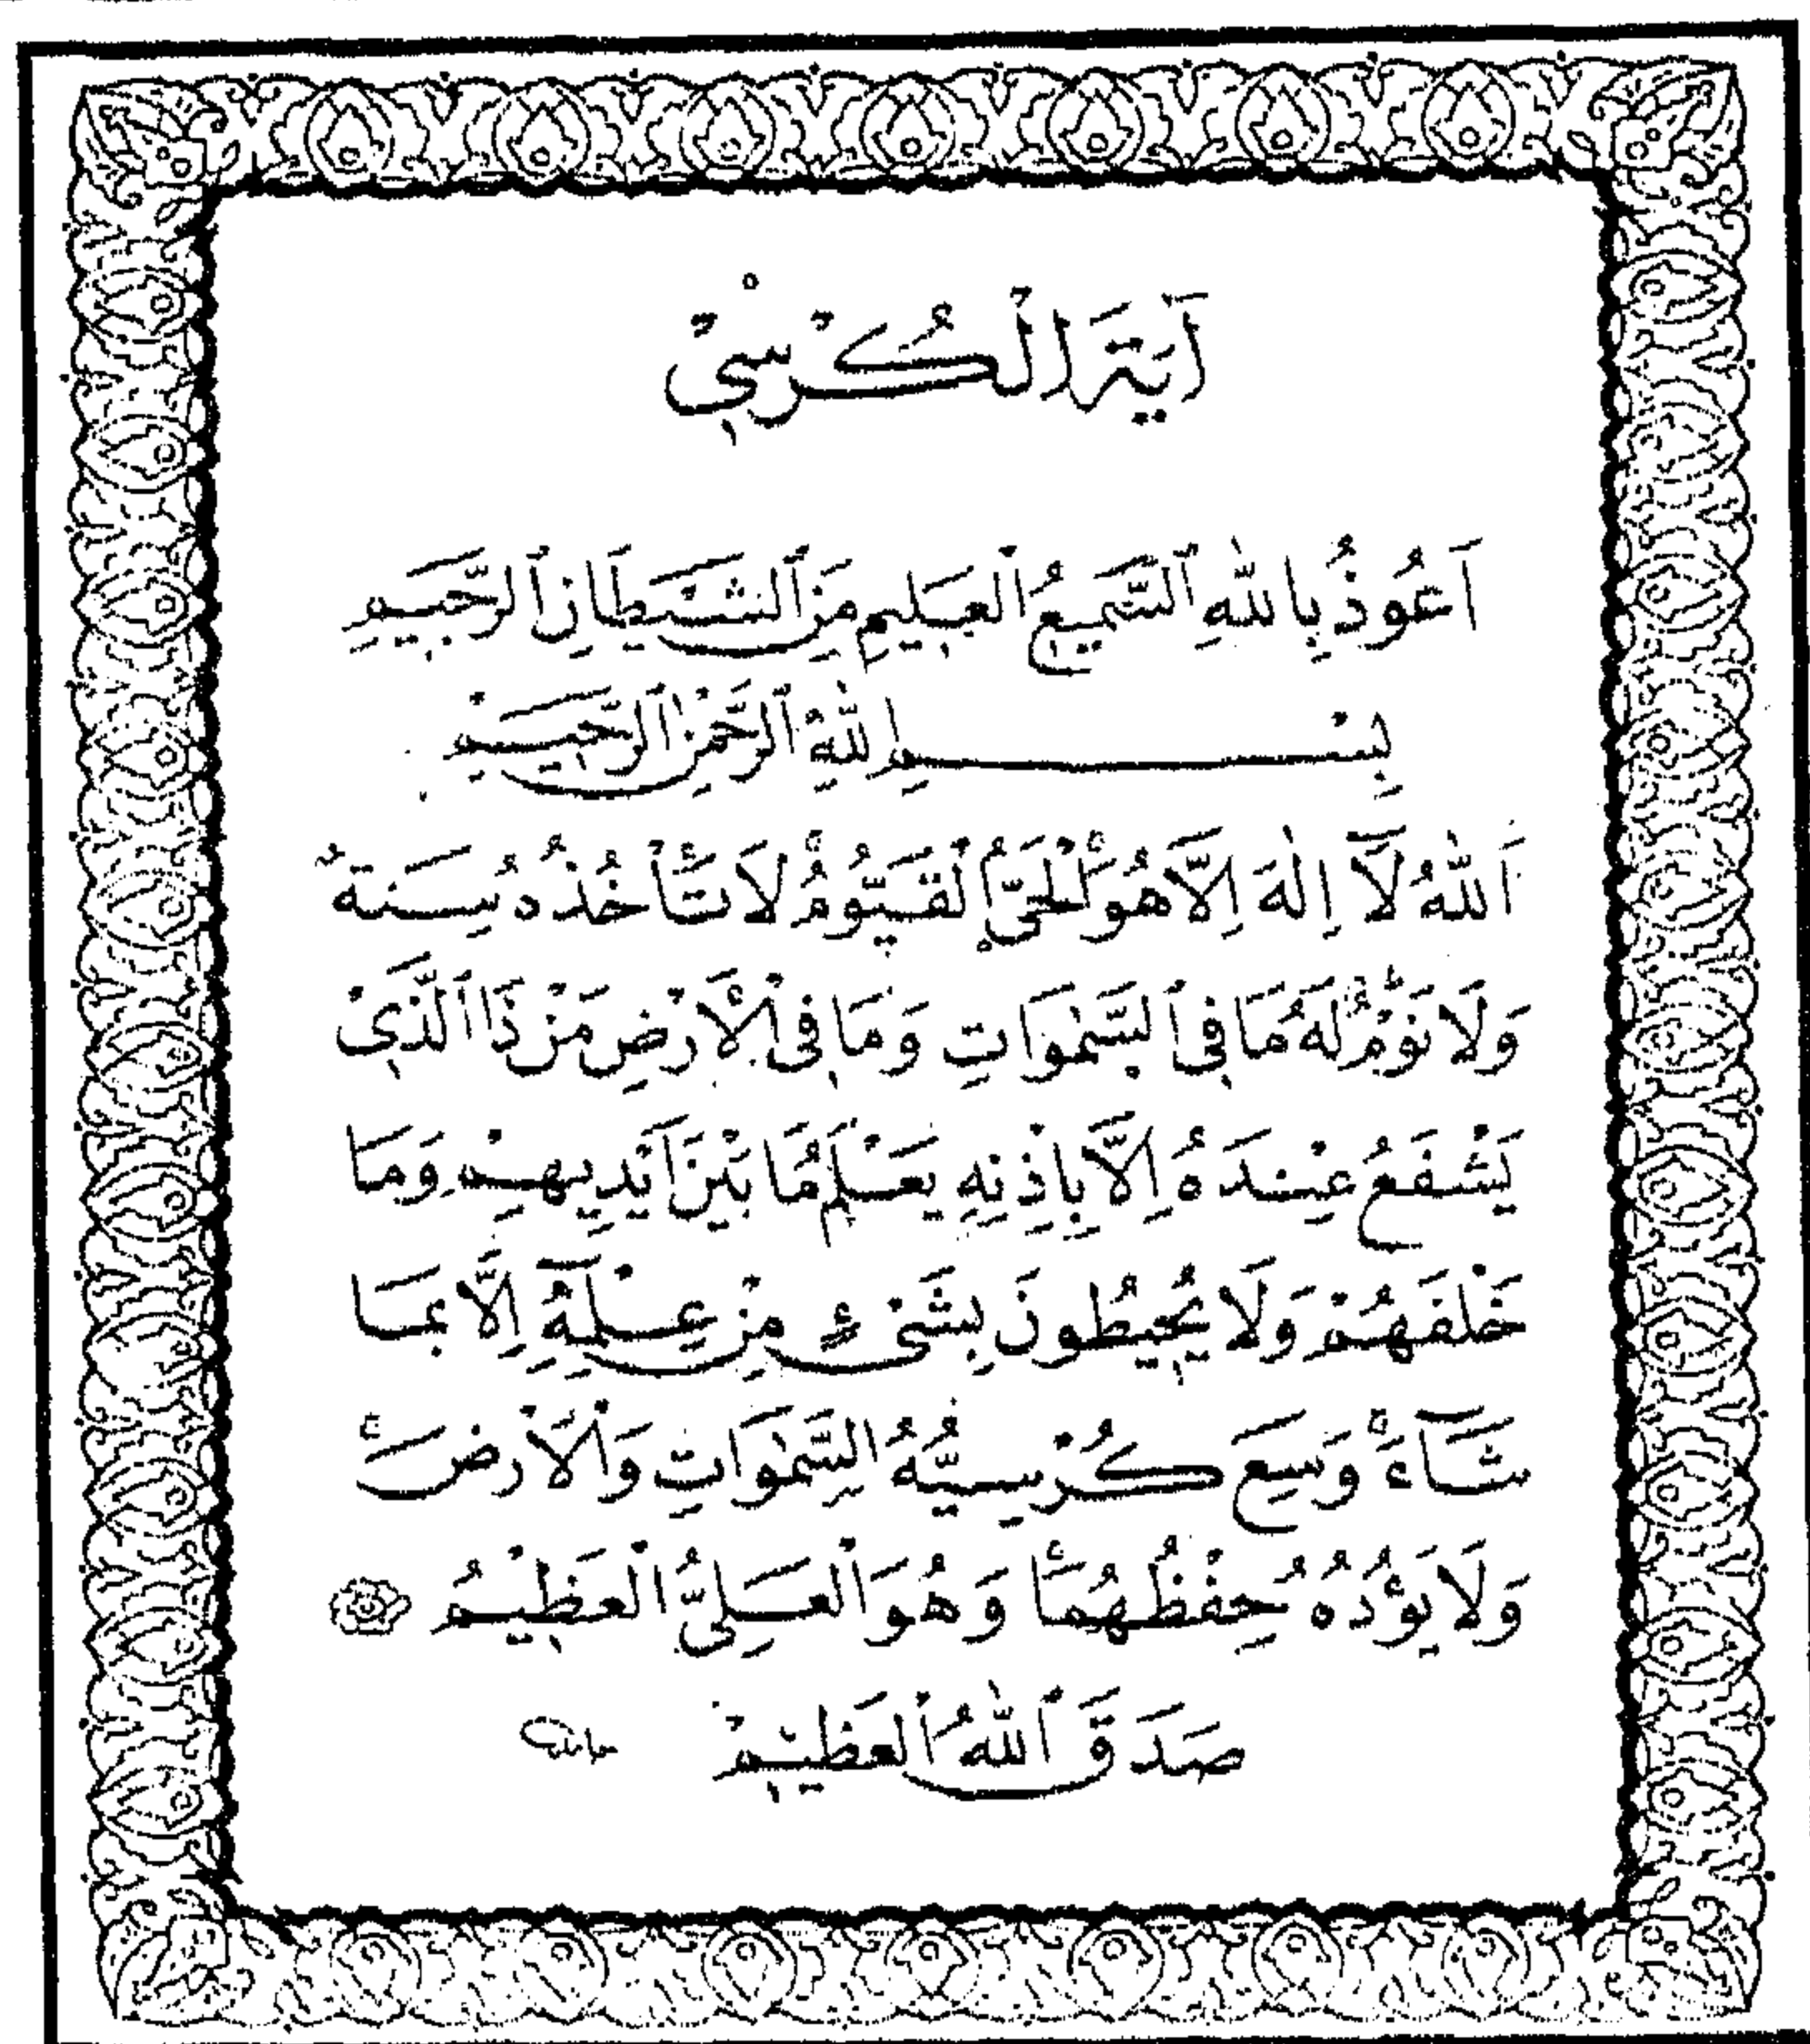 آيَةَ الْكُرْسِيْ
اَعُوذُ بِاللّٰهِ ٱلسَّمِيعُ ٱلْعَلِيمِ مِنَ ٱلشَّيْطَانِ ٱلرَّجِيمِ
بِسْمِ اللّٰهِ ٱلرَّحْمٰنِ ٱلرَّحِيمْ
اَللّٰهُ لَآ اِلٰهَ اِلَّا هُوَ ۚ اَلْحَيُّ الْقَيُّومُ ۚ لَا تَأْخُذُهُ سِنَةٌ
وَلَا نَوْمٌ ۜ لَهُ مَا فِي ٱلسَّمٰوَاتِ وَمَا فِي الْاَرْضِ ۜ مَنْ ذَا الَّذِيْ
يَشْفَعُ عِنْدَهُ اِلَّا بِاِذْنِهِ يَعْلَمُ مَا بَيْنَ اَيْدِيهِمْ وَمَا
خَلْفَهُمْ وَلَا يُحِيطُونَ بِشَىْءٍ مِنْ عِلْمِهِ اِلَّا بِمَا
شَآءَ ۚ وَسِعَ كُرْسِيُّهُ السَّمٰوَاتِ وَالْاَرْضَ ۚ
وَلَا يَؤُدُهُ حِفْظُهُمَا ۚ وَهُوَ الْعَلِيُّ الْعَظِيْمُ
صَدَقَ ٱللّٰهُ ٱلْعَظِيْمْ